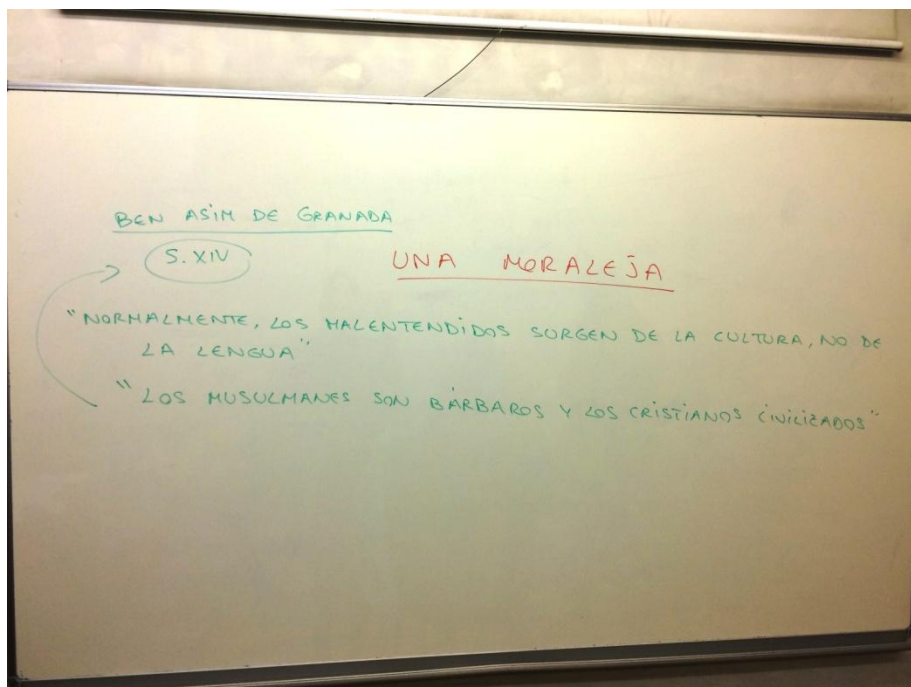 BEN ASIM DE GRANADA
S. XIV
UNA MORALEJA
"NORMALMENTE, LOS MALENTENDIDOS SURGEN DE LA CULTURA, NO DE
LA LENGUA"
"LOS MUSULMANES SON BÁRBAROS Y LOS CRISTIANOS CIVILIZADOS"